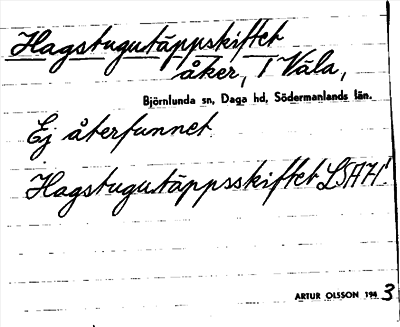 Hagstugutäppskiftet
åker, 1 Våla,
Björnlunda sn, Daga hd, Södermanlands län.
Ej återfunnet
Hagstugutäppsskiftet LSA71!
ARTUR OLSSON 1943